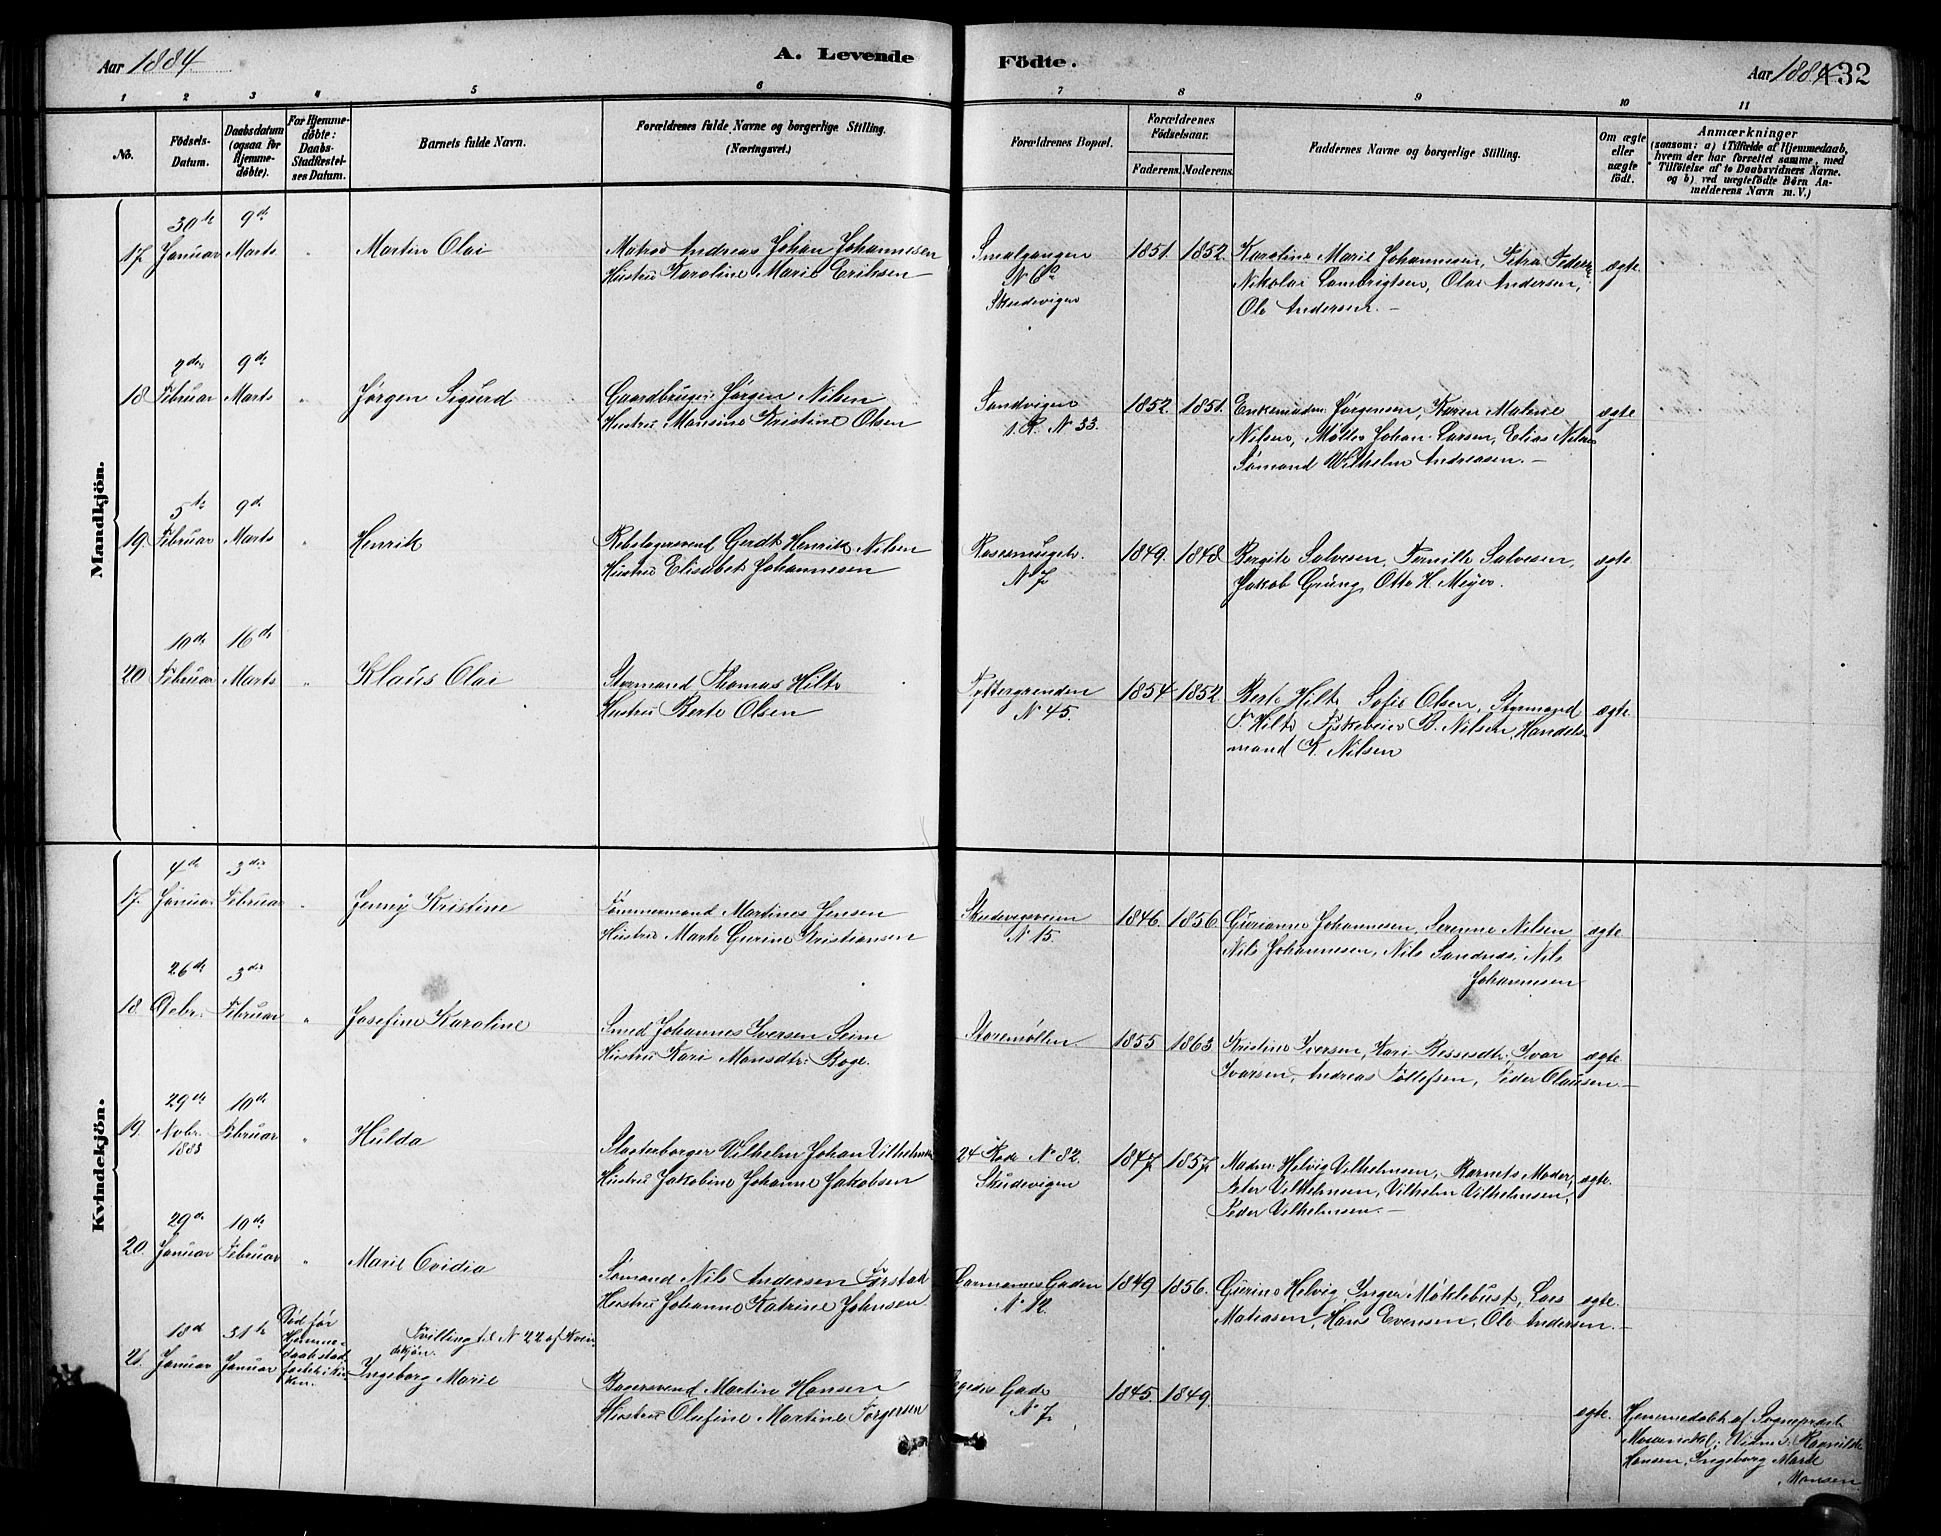 Aar 1884
A. Levende
Födte.
Aar 1884
132
1 2 3 4 5 6 7 8 9 10 11
No.
Födsels-
Datum.
Daabsdatum
(ogsaa for
Hjemme-
döbte).
For Hjemme-
döbte:
Daabs-
Stadfæstel-
ses Datum.
Barnets fulde Navn.
Forældrenes fulde Navne og borgerlige Stilling.
(Næringsvei.)
Forældrenes Bopæl.
Forældrenes
Födselsaar.
Faderens. Moderens.
Faddernes Navne og borgerlige Stilling.
Om ægte
eller
uægte
födt.
Anmærkninger
(saasom: a) i Tilfælde af Hjemmedaab,
hvem der har forrettet samme, med
Tilföielse af to Daabsvidners Navne.
og b) ved uægtefödte Börn An-
melderens Navn m. V.)
Mandkjön.
30te 9de
17. Januar Marts " Martin Olai
Matros Andreas Johan Johannesen
Hustru Karoline Marie Eriksen
Smalgangen
N 6a
Skudevigen
1851. 1852.
Karoline Marie Johannesen, Petra Peders
Nikolai Lambrigtsen, Olai Andersen,
Ole Andersen. –
ægte.
2den 9de
18 Februar Marts " Jørgen Sigurd
Gaardbruger Jørgen Nilsen
Hustru Monsine Kristine Olsen
Sandvigen
1. R. N 33.
1852. 1851.
Enkemadm: Jørgensen, Karen Malene
Nilsen, Møller Johan Larsen, Elias Nilsen
Sømand Wilhelm Andreasen. –
ægte
5te 9de
19. Februar Marts " Henrik
Rebslagersvend Gerdt Henrik Nilsen
Hustru Elisabet Johannesen
N 7
1849. 1848
Bergite Salvesen, Pernille Salvesen,
Jakob Grung, Otto H. Meyer.
ægte
10de 16de
20 Februar Marts " Klaus Olai
Styrmand Thomas Hilt
Hustru Berte Olsen
N 45.
1854 1852.
Berte Hilt, Sofie Olsen, Styrmand
T. Hilt, B. Nilsen, Handels-
mand K. Nilsen
ægte.
Kvindekjön.
4de 3die
17. Januar Februar " Jenny Kristine
Tømmermand Martines Jensen
Hustru Marte Gurine Kristiansen
Skudevigsveien
N 15.
1846. 1856
Gurianne Johannesen, Serenne Nilsen
Nils Johannesen, Nils Sandnes, Nils
Johannesen
ægte
26de 3die
18. Debr. Februar " Josefine Karoline
Smed Johannes Iversen Seim
Hustru Kari Monsdtr: Boge.
Storemøllen
1855 1863
Kristine Iversen, Kari Bessesdtr:, Ivar
Ivarsen, Andreas Tollefsen, Peder Clausen –
ægte.
29de 10de
19. Novbr. Februar " Hulda
1883
Slagterborger Vilhelm Johan Vilhelmsen
Hustru Jakobine Johanne Jakobsen
24 Rode N 82.
Skudevigen
1847 1857
Madm: Helvig Vilhelmsen, Barnets Moder,
Peter Vilhelmsen, Vilhelm Vilhelmsen,
Peder Vilhelmsen. –
ægte.
29de 10de
20. Januar Februar " Marie Ovidia
Sømand Nils Andersen Førstad
Hustru Johanne Katrine Johnsen
Gaden
N 12.
1849 1856.
Gurine Helvig, Inger Møklebust, Lars
Matiasen, Hans Evensen, Ole Andersen. –
ægte.
18d 31te
21. Januar Januar
Død før
Hjemme-
daab stad-
fæstet i Kir-
ken.
Tvilling til N 22 af Kvin-
dekjøn.
Ingeborg Marie
Bagersvend Martin Hansen
Hustru Olufine Martine Torgersen
Gade
N 7
1845. 1849.
ægte.
Hjemmedøbt af Sogneprest
Vidner: Ragnilde
Hansen, Ingeborg Marie
Monsen